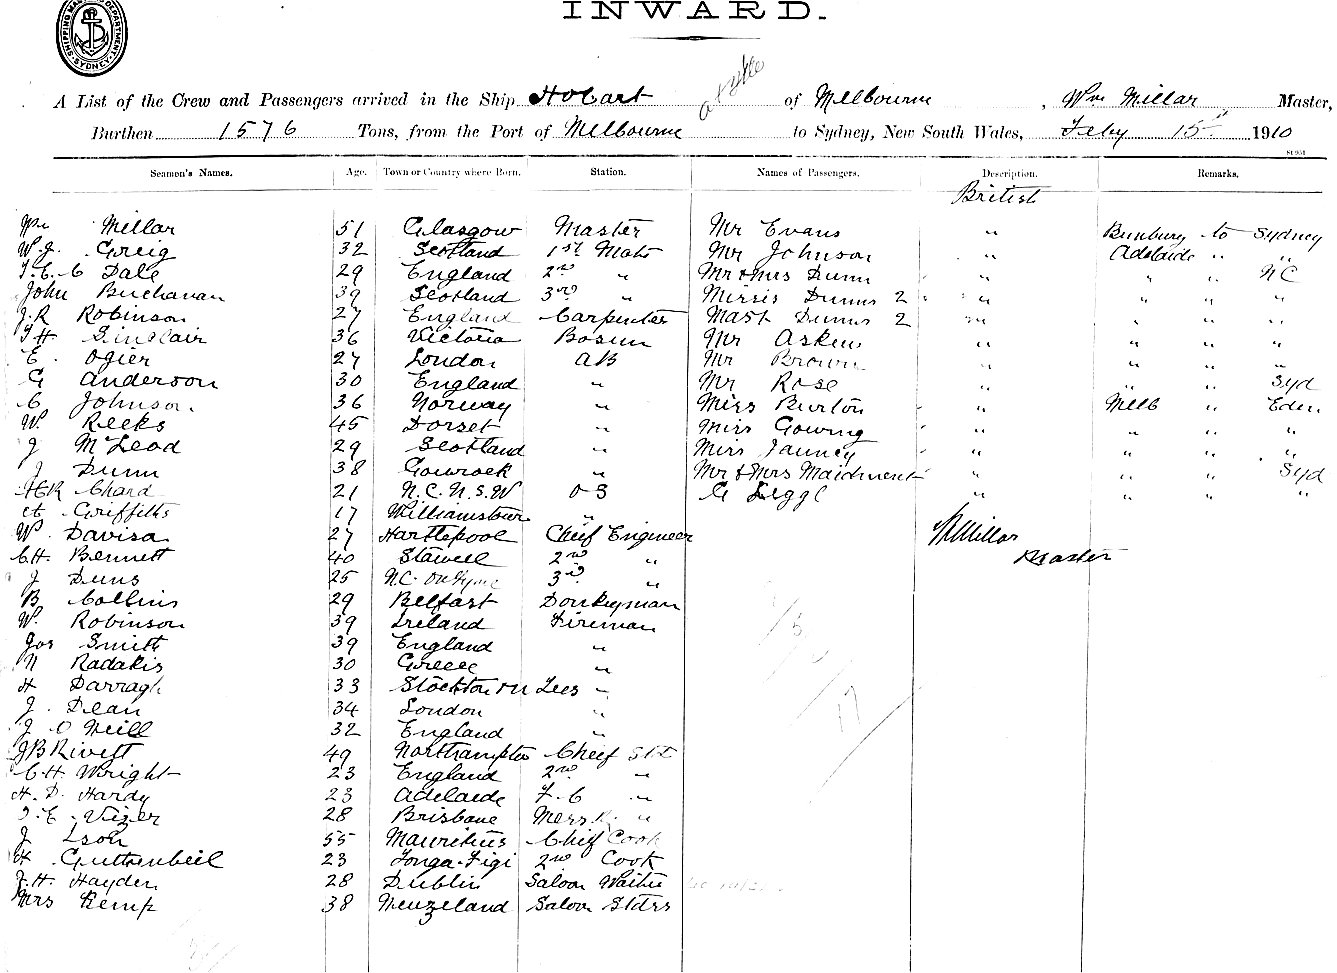 INWARD.
SHIPPING MASTER'S DEPARTMENT. SYDNEY.
A List of the Crew and Passengers arrived in the Ship Hobart of Melbourne, Wm Millar Master,
Burthen 1576 Tons, from the Port of Melbourne to Sydney, New South Wales, Feby 15th 1910
Seamen's Names. Age. Town or Country where Born. Station. Names of Passengers. Description. Remarks.
British
Wm Millar 51 Glasgow Master Mr Evans " Bunbury to Sydney
W.J. Greig 32 Scotland 1st Mate Mr Johnson " Adelaide " "
T.E.C Dale 29 England 2nd " Mr & Mrs Dunn " " " NC
John Buchanan 39 Scotland 3rd " Misses Dunns 2 " " " "
J.R Robinson 27 England Carpenter Mast Dunns 2 " " " "
T H Sinclair 36 Victoria Bosun Mr Askew " " " "
E. Ogier 27 London AB Mr Brown " " " "
G Anderson 30 England " Mr Rose " " " Syd
C Johnson. 36 Norway " Miss Burton " Melb " Eden
W. Reeks 45 Dorset " Miss Gowing " " " "
J McLeod 29 Scotland " Miss Janney " " " "
J Dunn 38 Gourock " Mr & Mrs Maidment " " " Syd
Chard 21 N.C. N.S.W O-S G Leggl " " " "
Griffiths 17 Williamstown "
W. Davisa 27 Hartlepool Cheif Engineer WMillar
C.H. Bennett 40 Stawell 2nd " Master
J Duns 25 N.C. on Tyne 3rd "
B Collins 29 Belfast Donkeyman
W. Robinson 39 Ireland Fireman
Jos Smith 39 England "
N Radakis 30 Greece "
H Darragh 33 Stockton on Tees "
J. Dean 34 London "
J O Neill 32 England "
J B Rivett 49 Northampton Cheef Std
C H. Wright 23 England 2nd "
H. D. Hardy 23 Adelaide F-C "
T.E. Vizer 28 Brisbane Mess R "
J Ison 55 Mauritius Chif Cook
H Guttenbeil 23 Tonga-Figi 2nd Cook
J.H. Hayden 28 Dublin Saloon Waiter
Mrs Kemp 38 Neuzeland Saloon Stdrs